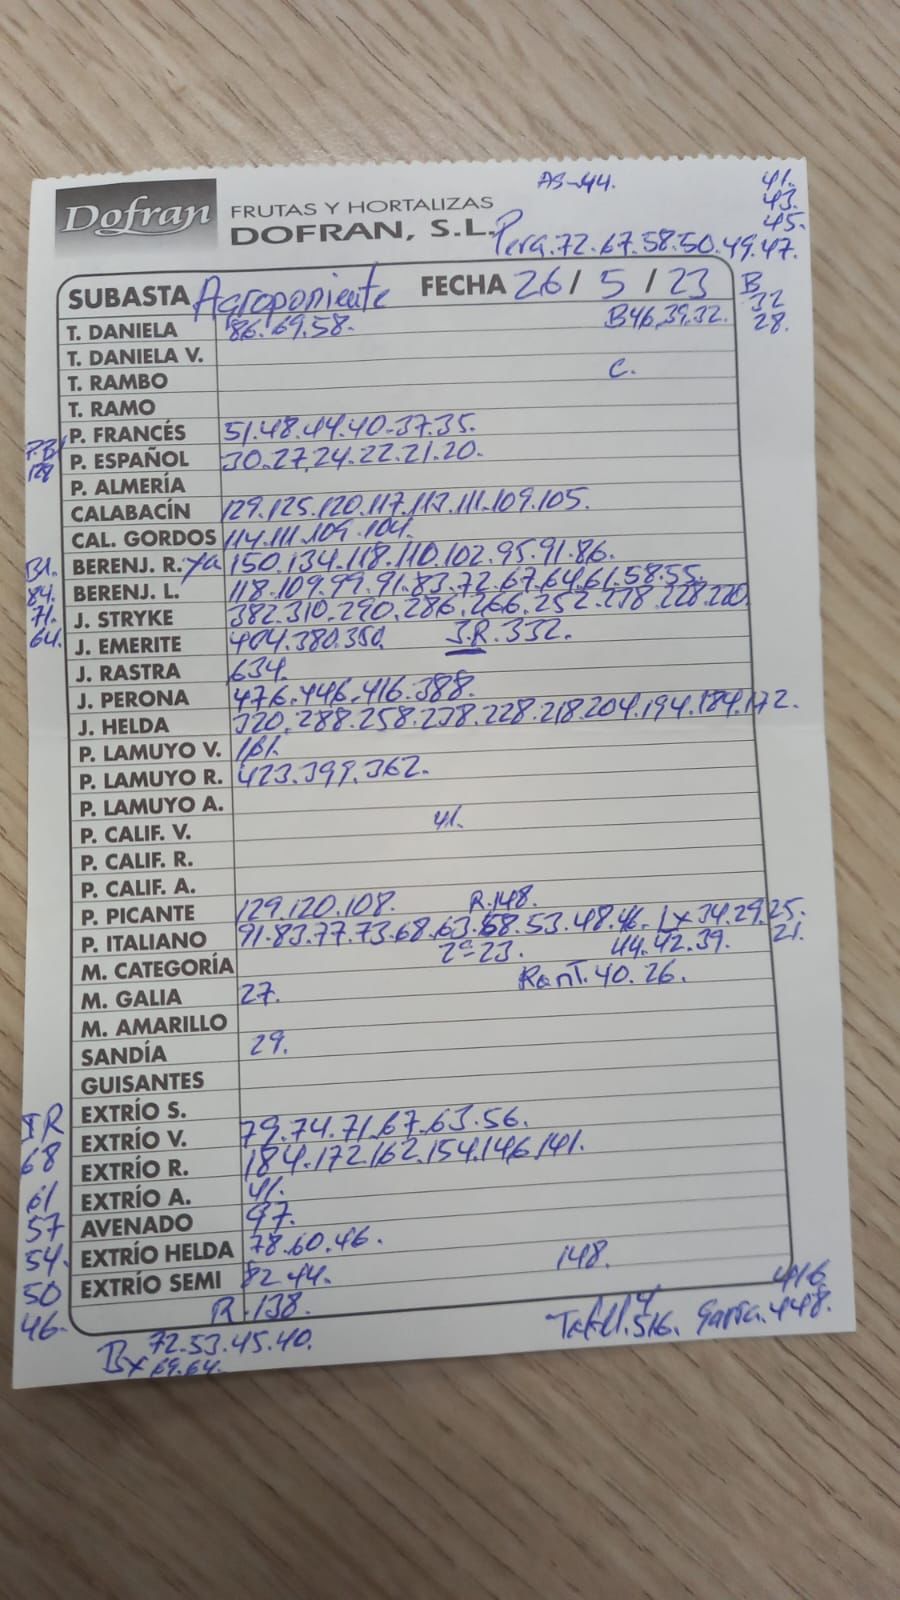 AS-44.
41.
43.
45.
Dofran FRUTAS Y HORTALIZAS
DOFRAN, S.L.
Pera.72.67.58.50.49.47.
SUBASTA Agroponiente FECHA 26/5/23
B
32
28.
T. DANIELA 86.69.58. B46.39.32.
T. DANIELA V.
T. RAMBO C.
T. RAMO
P. FRANCÉS 51.48.44.40.37.35.
P. ESPAÑOL 30.27.24.22.21.20.
P. ALMERÍA
CALABACÍN 129.125.120.117.113.111.109.105.
CAL. GORDOS 114.111.109.104.
BERENJ. R. Ya 150.134.118.110.102.95.91.86.
BERENJ. L. 118.109.99.91.83.72.67.64.61.58.55.
84.
71.
64.
J. STRYKE 382.310.290.286.266.252.238.228.220.
J. EMERITE 404.380.350. J.R.332.
J. RASTRA 634.
J. PERONA 476.446.416.388.
J. HELDA 320.288.258.238.228.218.204.194.184.172.
P. LAMUYO V. 161.
P. LAMUYO R. 423.399.362.
P. LAMUYO A.
P. CALIF. V. 41.
P. CALIF. R.
P. CALIF. A.
P. PICANTE 129.120.108. R.148.
P. ITALIANO 91.83.77.73.68.63.58.53.48.46. Lx 34.29.25.
21.
2ª-23. 44.42.39.
M. CATEGORÍA
M. GALIA 27. RanT.40.26.
M. AMARILLO
SANDÍA 29.
GUISANTES
EXTRÍO S.
EXTRÍO V. 79.74.71.67.63.56.
EXTRÍO R. 184.172.162.154.146.141.
EXTRÍO A. 41.
AVENADO 97.
EXTRÍO HELDA 78.60.46.
EXTRÍO SEMI 82.44. 148.
68
61
57
54.
50
46.
R.138.
416.
Garra.448.
Bx 72.53.45.40.
69.64.